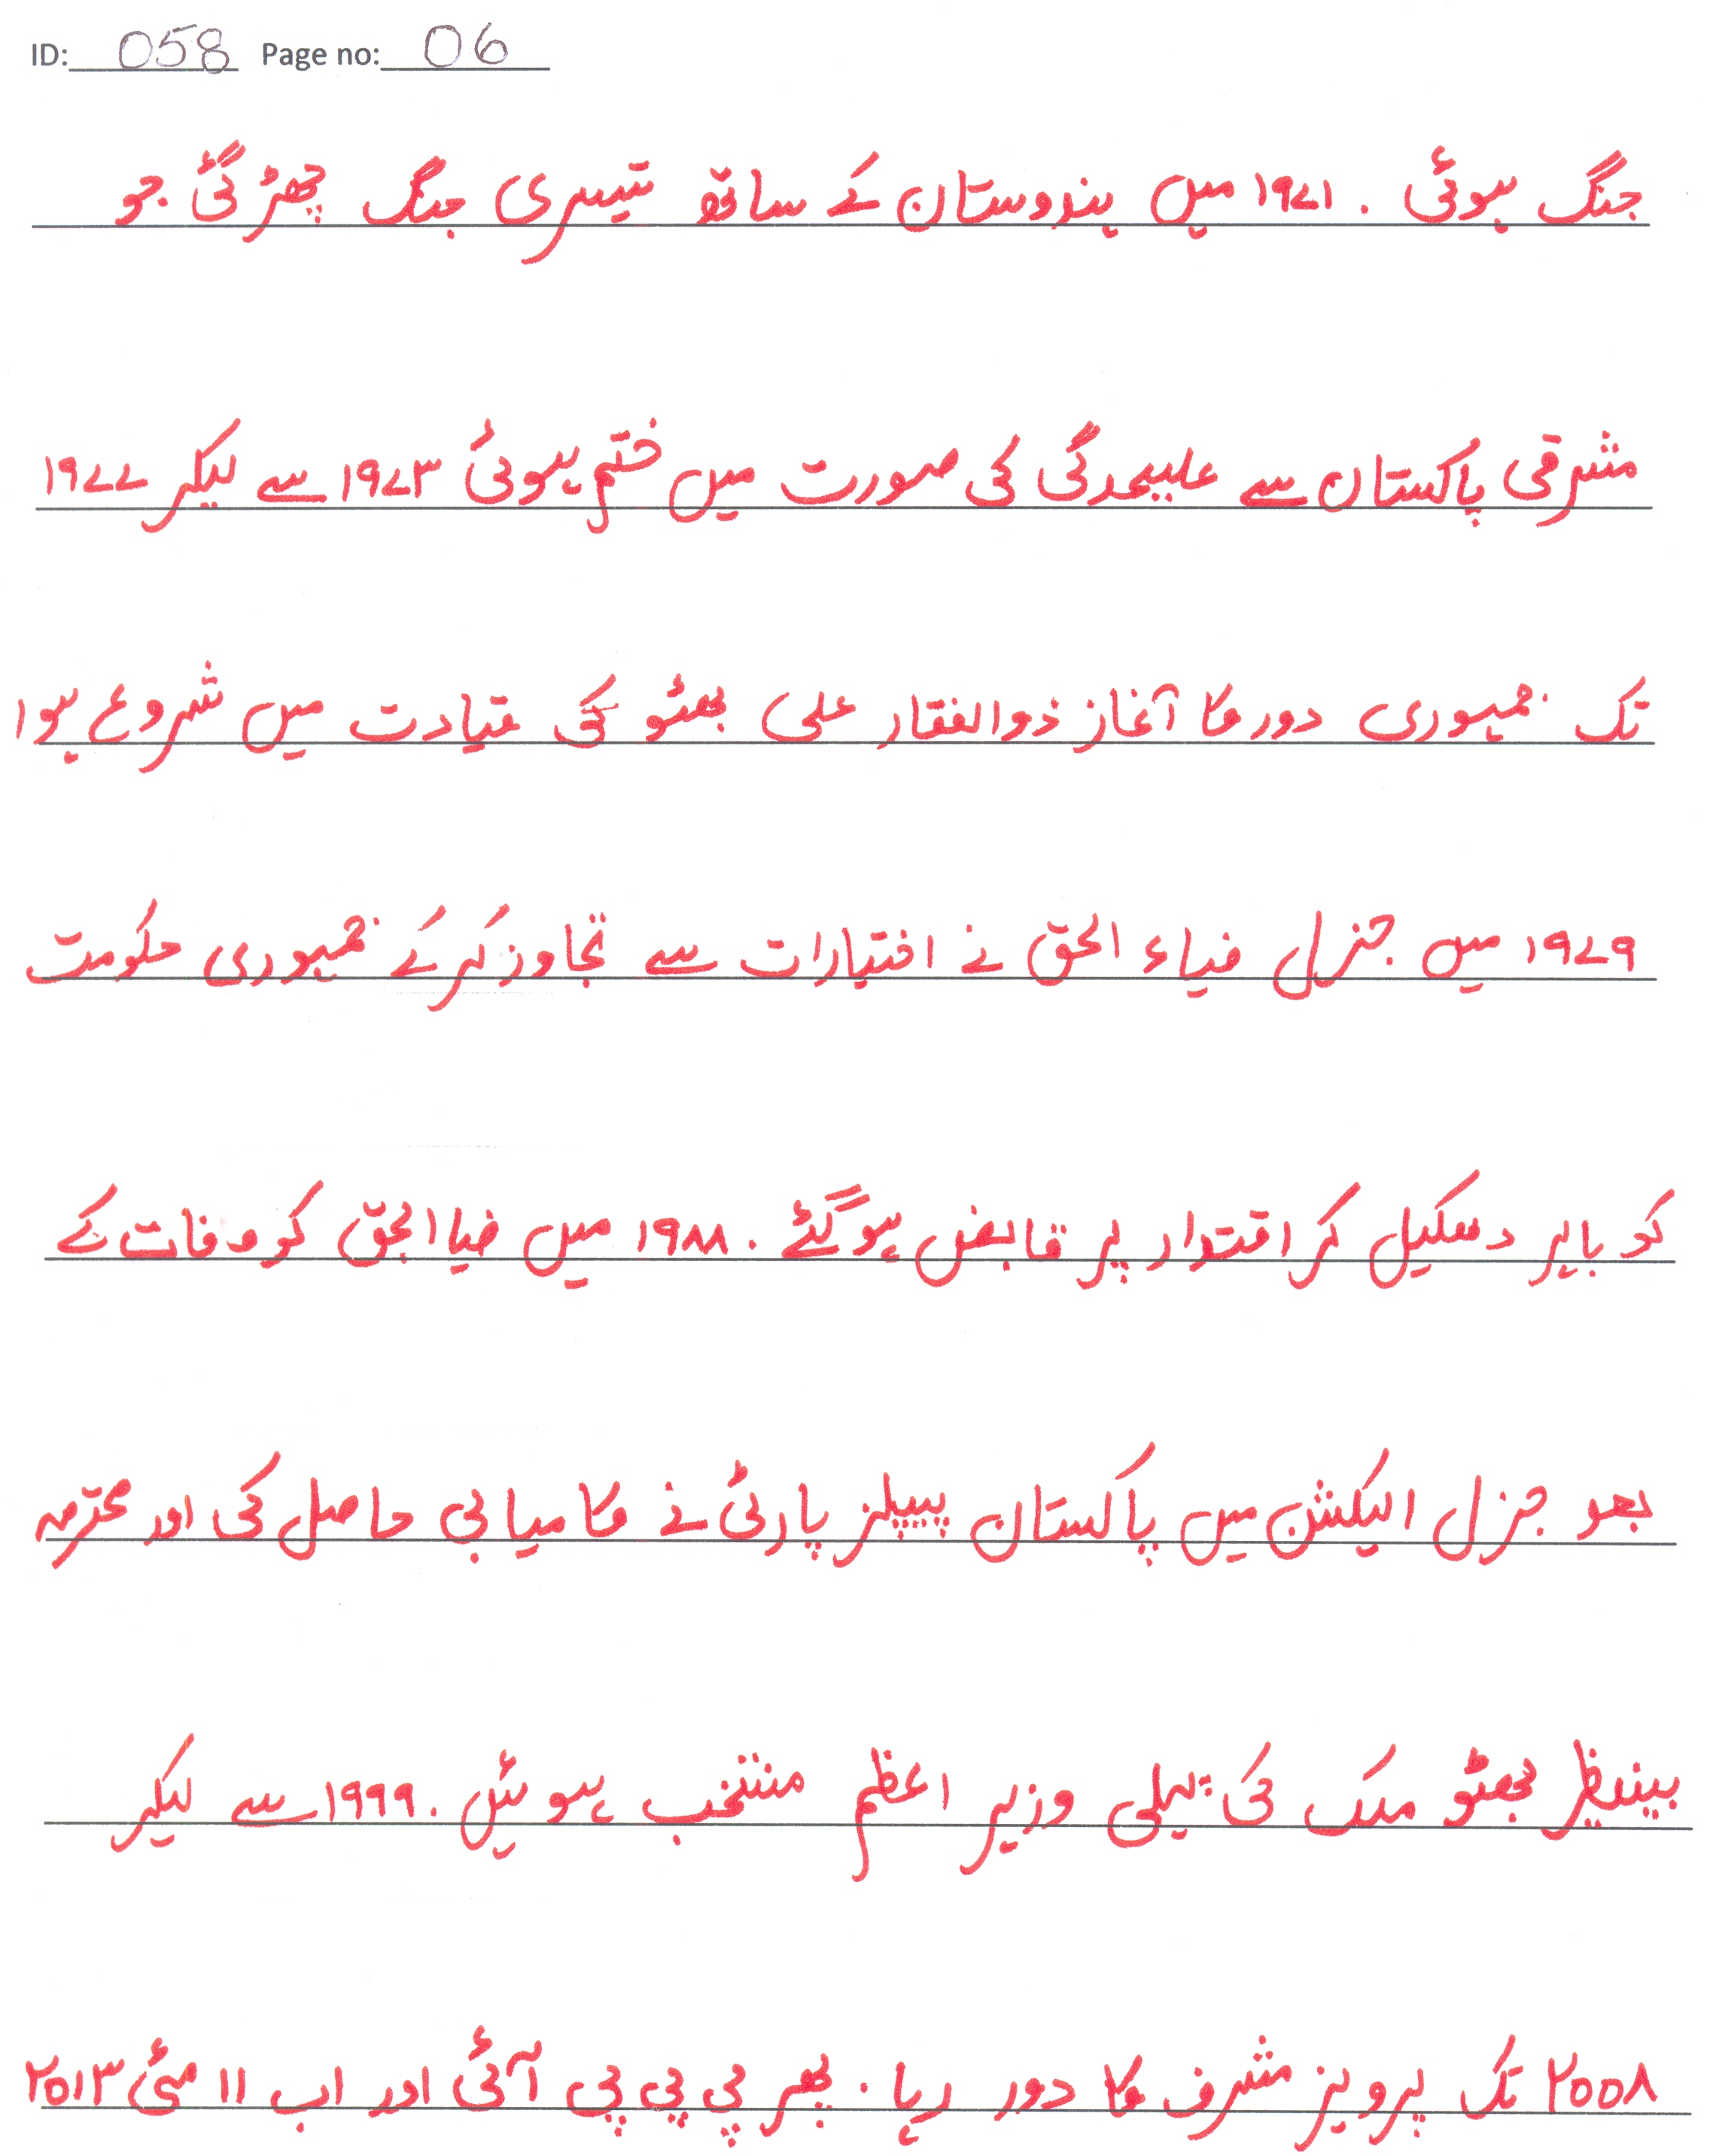 ID: 058 Page no: 06
جنگ ہوئی . ۱۹۷۱ میں ہندوستان کے ساتھ تیسری جنگ چھڑ گئی جو
مشرقی پاکستان سے علیحدگی کی صورت میں ختم ہوئی ۱۹۷۳ سے لیکر ۱۹۷۷
تک جمہوری دور کا آغاز ذوالفقار علی بھٹو کی قیادت میں شروع ہوا
۱۹۷۹ میں جنرل ضیاء الحق نے اختیارات سے تجاوز کر کے جمہوری حکومت
کو باہر دھکیل کر اقتدار پر قابض ہو گئے . ۱۹۸۸ میں ضیا الحق کو وفات کے
بعد جنرل الیکشن میں پاکستان پیپلز پارٹی نے کامیابی حاصل کی اور محترمہ
بینظیر بھٹو ملک کی پہلی وزیر اعظم منتخب ہوئیں . ۱۹۹۹ سے لیکر
۲۰۰۸ تک پرویز مشرف کا دور رہا . پھر پی پی پی آئی اور اب ۱۱ مئی ۲۰۱۳